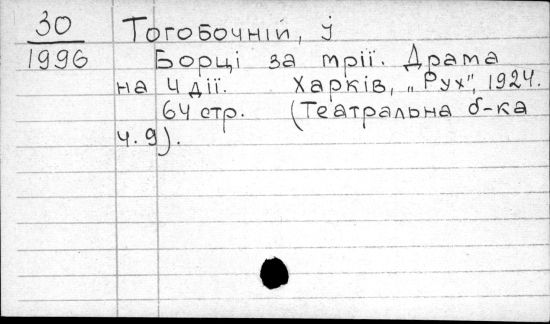 30
1996
Тогобочній, І
Борці за мрії. Драма
на 4 дії. Харків, „Рух", 1924.
64 стр. (Театральна б-ка
ч. 9).